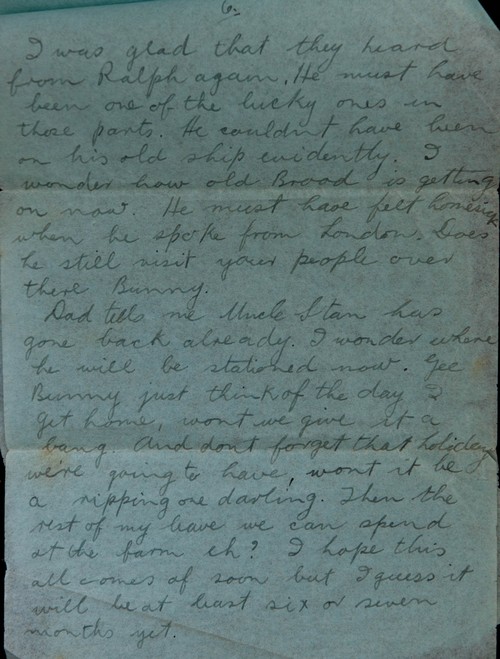 6.
I was glad that they heard
from Ralph again. He must have
been one of the lucky ones in
those parts. He couldn't have been
on his old ship evidently. I
wonder how old Brood is getting
on now. He must have felt homesick
when he spoke from London. Does
he still visit your people over
there Bunny.
Dad tells me Uncle Stan has
gone back already. I wonder where
he will be stationed now. Gee
Bunny just think of the day I
get home, wont we give it a
bang. And dont forget that holiday
we're going to have, wont it be
a ripping one darling. Then the
rest of my leave we can spend
at the farm eh? I hope this
all comes of soon but I guess it
will be at least six or seven
months yet.